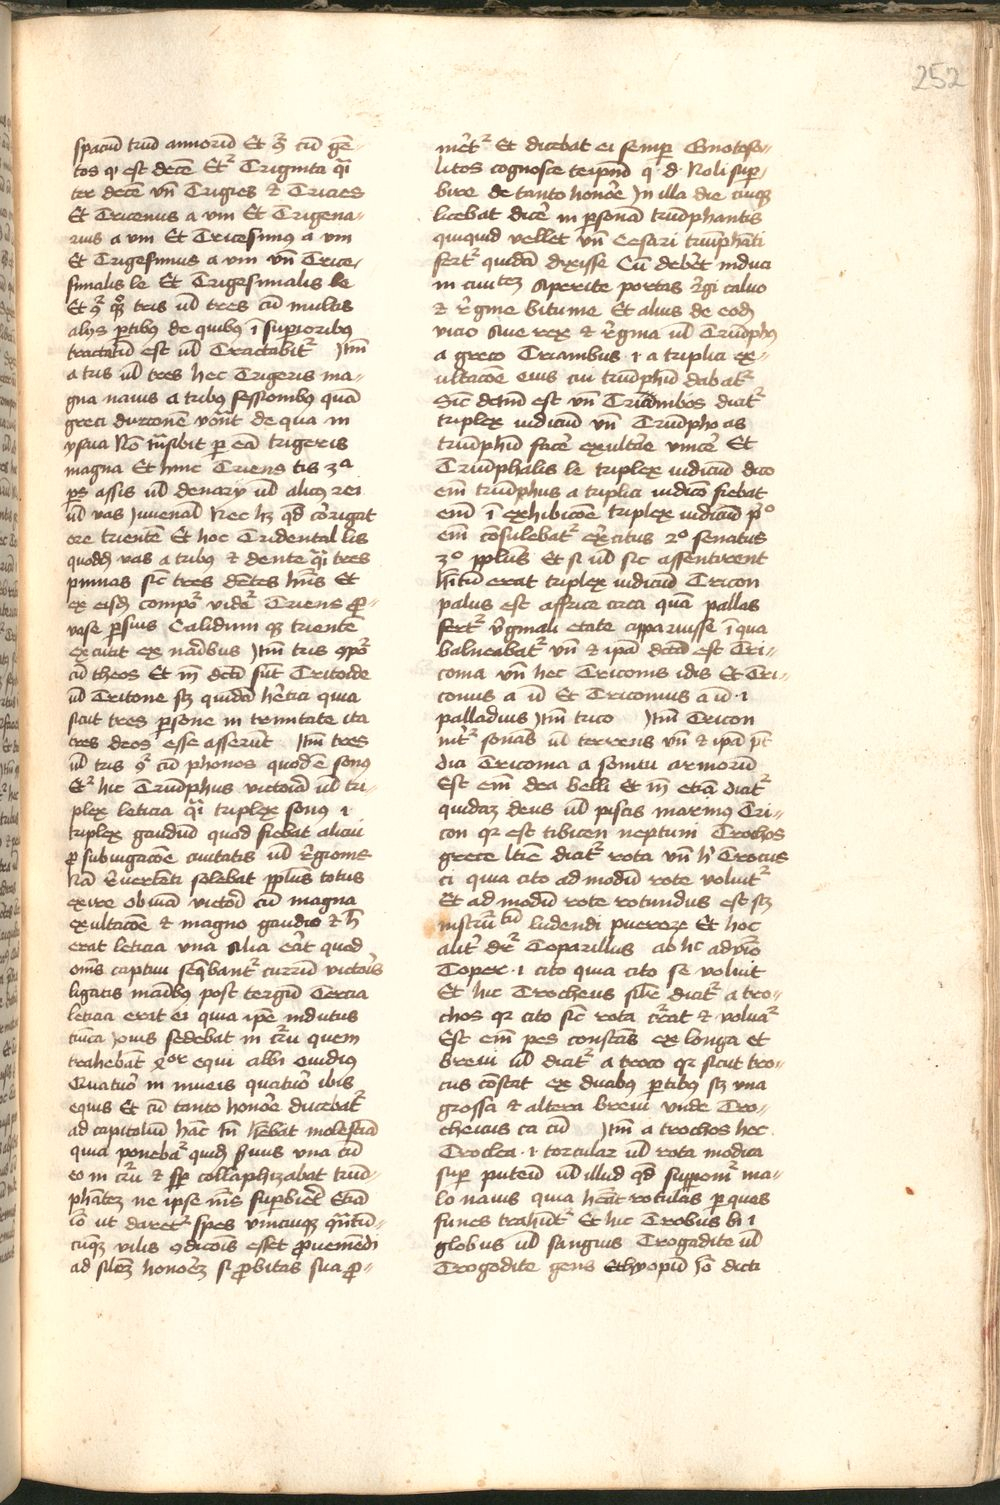 252
spaciū triū annorū Et ꝯ̄ cū gē-
tos qͥ est decē Etᷓ Triginta qͣi
ter decē vn̄ Trigies ⁊ Tricies
Et Tricenus a um Et Trigena-
rius a um Et Tricesimꝰ a um
Et Trigesimus a um vn̄ Trice-
simalis le Et Trigesimalis le
Et ꝯ̄ tris ul̄ tres cū multis
alijs ꝑtibꝰ de quibꝰ ī supioribꝰ
tractatū est ul̄ Tractabit᷑ Itm̄
a tris ul̄ tres hec Trigeris ma-
gna nauis a tribꝰ sessionibꝰ quā
greci durconē vōnt de qua in
ysaia Nō tn̄sibit ꝑ eā trigeris
magna Et hinc Triens tis 3ᵃ
ꝑs assis ul̄ denarij ul̄ alicꝰ rei
ul̄ vas Iuuenal̄ Nec hꝫ qd̄ cōrigat
ore trientē Et hoc Tridental lis
quoddā vas a tribꝰ ⁊ dente qͣi tres
pinnas sic̄ tres dētes hn̄s Et
ex eisdē compoᷓ videᷓ Triens ꝓ
vase ꝑsius Calidum qꝫ trientē
excutit ex manibus Itm̄ tris ꝯpoᷓ
cū theos Et in̄ dc̄ti sūt Tritoide
ul̄ Tritone scꝫ quidā hētici quia
sicut tres ꝑsone in trinitate ita
tres deos esse asserūt Itm̄ tres
ul̄ tris ꝯ̄ cū phonos quod ē sonꝰ
Etᷓ hic Triūphus victoriā ul̄ tri-
plex leticia qͣi triplex sonus .i.
triplex gaudiū quod fiebat alicui
ꝓ subiugacōe ciuitatis ul̄ rēgionis
Nā rēuertēti solebat ppl̄us totus
exire obuiā victori cū magna
exultacōe ⁊ magno gaudio ⁊ h̄
erat leticia una Alia erāt quod
om̄s captiui seq̄bant᷑ currū victoris
ligatis manibꝰ post tergū Tercia
leticia erat ei quia ip̄e indutus
tunica Iouis sedebat in crū quem
trahebāt 4ᵒʳ equi albi ouidius
Quatuor in niueis quatuor ibis
equis Et cū tanto honōe ducebat᷑
ad capitoliū hāc tn̄ hēbat molestiā
quia ponebat᷑ quidā seruus una cū
eo in crū ⁊ sp̄ collaphizabat triū-
phātem ne ipse nīs superbiret Etiā
iō ut daret᷑ spes vnicuiqꝫ qn̄tū-
cūqꝫ vilis ꝯdicōis esset ꝓueniēdi
ad silēꝫ honorēꝫ si ꝓbitas sua ꝓ-
mēret᷑ Et dicebat ei semꝑ Gnotoso-
litos cognosce teipm̄ q̇.d. Noli sup-
bire de tanto honōe In illa die cuiqꝫ
licebat dicē in ꝑsonā triūphantis
quiquid vellet vn̄ Cesari triūphāti
fert᷑ quidā dixisse Cū debēt induci
in ciuitēꝫ Aperite portas rēgi caluo
⁊ rēgine bitume Et alius de eodē
vicio Aue rex ⁊ rēgina ul̄ Triūphꝰ
a greco Triambus .i. a triplici ex-
ultacōe eius cui triūphū dabat᷑
Sic̄ dc̄tm̄ est vn̄ Triūmbos dicit᷑
triplex iudiciū vn̄ Triūpho as
triūphū facē exultāe vincē Et
Triūphalis le triplex iudiciū dico
em̄ triūphus a triplici iudicio fiebat
em̄ ī exhibicōe triplex iudiciū pᵒ
em̄ cōsulebat᷑ exc̄itus 2ᵒ senatus
3ᵒ ppl̄us Et si ul̄ sic assentirent
hītū erat triplex iudiciū Tricon
palus est affrice circa quā pallas
fert᷑ vg̓inali etate apparuisse ī qua
balneabat᷑ vn̄ ⁊ ipā dc̄tā est Tri-
conia vn̄ hec Triconis idis Et Tri-
conius a ū Et Triconius a ū .i.
palladius Itm̄ trico Itm̄ Tricon
int᷑ sonās ul̄ terrens vn̄ ⁊ ipā pt̄
dici Triconia a sonitu armorū
Est em̄ dea belli Et in̄ etiā dicit᷑
quidaꝫ deus ul̄ piscis marinꝰ Tri-
con qr est tibicen neptuni Trochos
grece lt̄ie dicit᷑ rota vn̄ hͦ Trocus
ci quia cito ad modū rote voluit᷑
Et ad modū rote rotundus est scꝫ
instrūtū ludendi pueroꝝ Et hoc
alit᷑ dr̄ Toparillus ab hͨ adūio
Toper .i. cito quia cito se voluit
Et hic Trocheus silē dicit᷑ a tro-
chos qr cito sic̄ rota crēat ⁊ voluat᷑
Est em̄ pes constās ex longa et
breui ul̄ dicit᷑ a troco qr sicut tro-
cus cōstat ex duabꝰ ꝑtibꝰ scꝫ una
grossa ⁊ altera breui unde Tro-
cheicus ca cū Itm̄ a trochos hec
Troclea .i. torcular ul̄ rota modica
suꝑ puteū ul̄ illud qd̄ supponit᷑ ma-
lo nauis quia hēat rotulas ꝑ ques
funes trahūt᷑ Et hic Trobus bi .i.
globus ul̄ sanguis Trogadite ul̄
Trogodite gens Ethyopū iō dicti